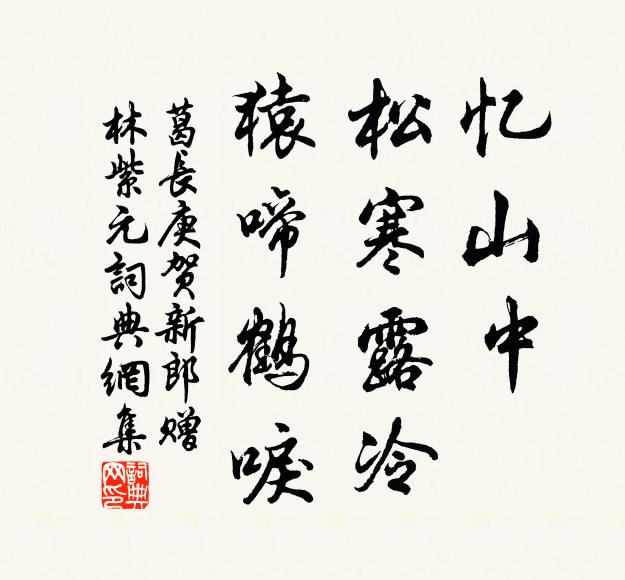 忆山中
松寒露冷
猿啼鹤唳
葛長庚贺新郎赠
林紫元詞典網集
詞典网印